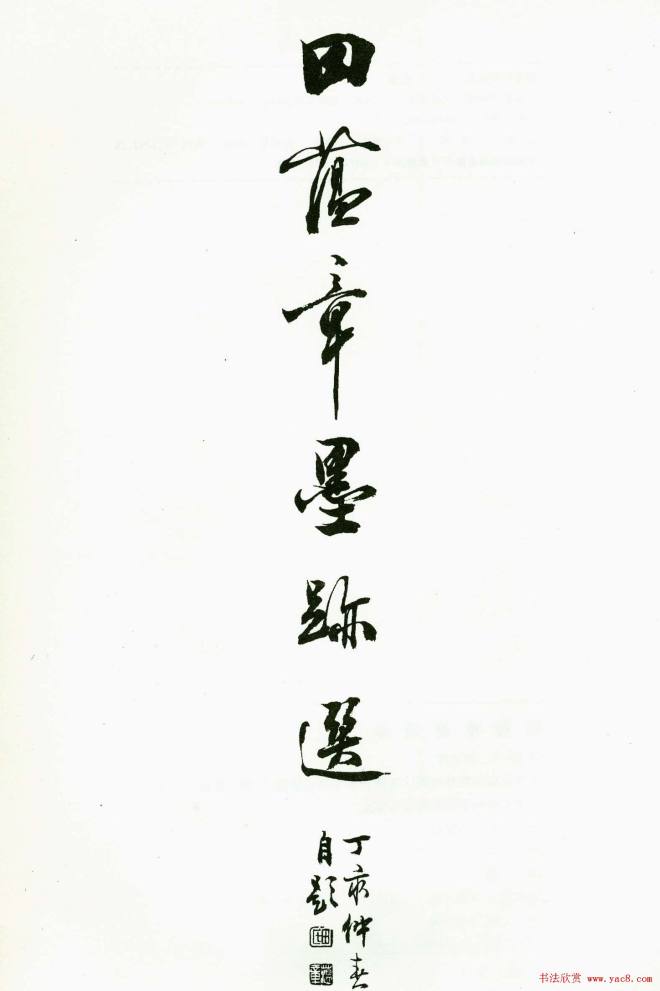 田蕴章墨跡選
丁亥仲春
自题
书法欣赏 www.yac8.com